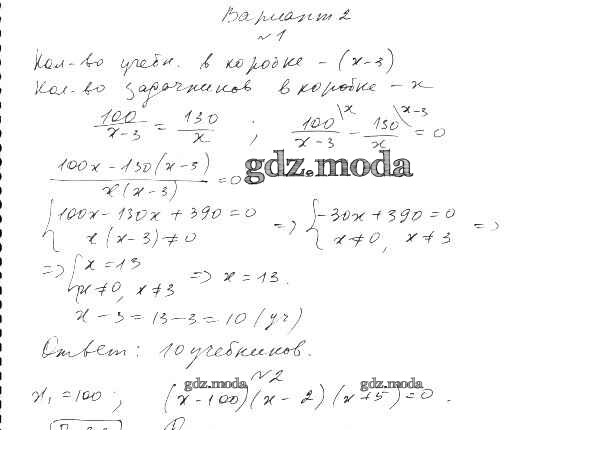 Вариант 2
№1
Кол-во учебн. в коробке - (x-3)
Кол-во задачников в коробке - x
100/(x-3) = 130/x ; 100\x/(x-3) - 130\x-3/x = 0
(100x - 130(x-3))/(x(x-3)) = 0
gdz.moda
{100x - 130x + 390 = 0 => {-30x + 390 = 0 =>
x(x-3) ≠ 0 x ≠ 0, x ≠ 3
=> {x = 13 => x = 13.
x ≠ 0, x ≠ 3
x - 3 = 13 - 3 = 10 (уч)
Ответ: 10 учебников.
№2
gdz.moda gdz.moda
x₁ = 100 ; (x - 100)(x - 2)(x + 5) = 0 .